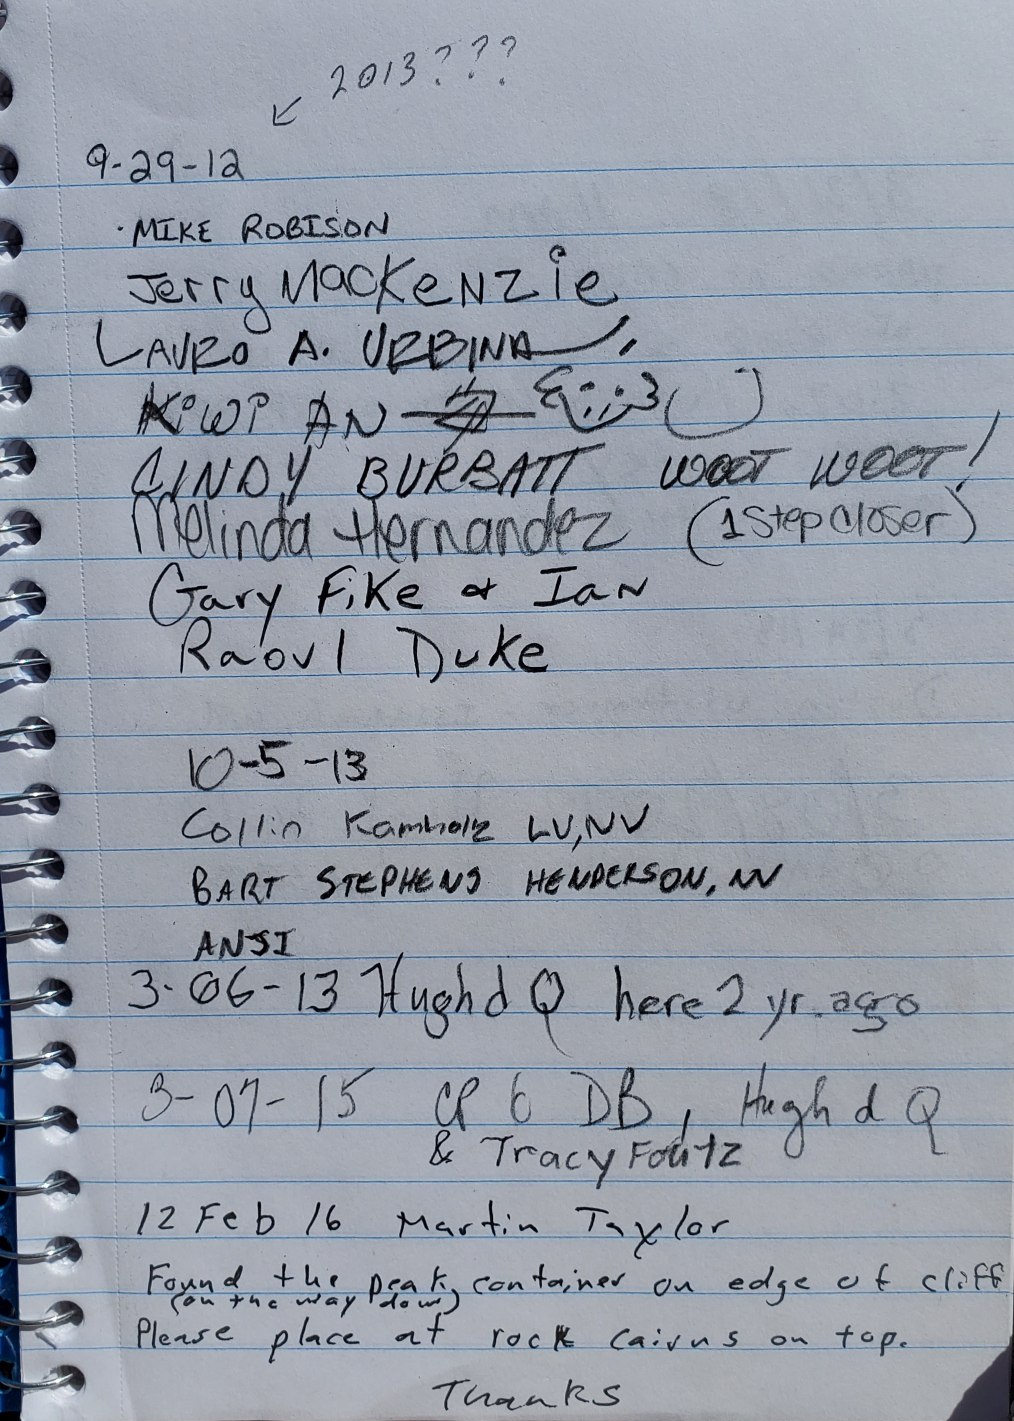 2013???
9-29-12
· MIKE ROBISON
Jerry MacKENZie
LAURO A. URBINA
KiWi AN
CINDY BURBATT WOOT WOOT!
Melinda Hernandez (1 Step Closer)
Gary FiKe & IaN
Raoul Duke
10-5-13
Collin Kamholz LV, NV
BART STEPHENS HENDERSON, NV
ANSI
3-06-13 Hugh d Q here 2 yr. ago
3-07-15 CP 6 DB, Hugh d Q
& Tracy Foutz
12 Feb 16 Martin Taylor
Found the peak container on edge of cliff
(on the way down)
Please place at rock cairns on top.
Thanks